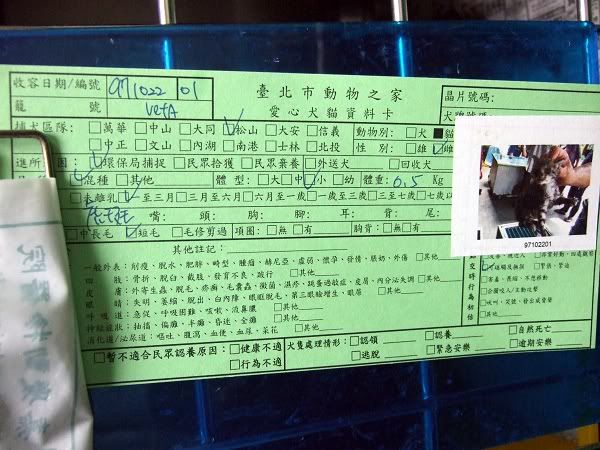 收容日期/編號 971022 01 臺北市動物之家 晶片號碼:
籠號 VetA 愛心犬貓資料卡
捕犬區隊: □萬華 □中山 □大同 ☑松山 □大安 □信義 動物別: □犬 ■貓
□中正 □文山 □內湖 □南港 □士林 □北投 性別: □雄 ☑雌
☑環保局捕捉 □民眾拾獲 □民眾棄養 □外送犬 □回收犬
☑混種 □其他 體型: □大 □中 ☑小 □幼 體重: 0.5 Kg
□未離乳 ☑至三月 □三月至六月 □六月至一歲 □一至三歲 □三至七歲 □七歲以
嘴: 頭: 胸: 腳: 耳: 背: 尾:
□中長毛 ☑短毛 □毛修剪過 項圈: □無 □有 胸背: □無 □有
97102201
其他註記:
一般外表: 削瘦、脫水、肥胖、畸型、腫瘤、赫尼亞、虛弱、懷孕、發情、脹奶、外傷 □其他
四肢: 骨折、脫臼、截肢、發育不良、跛行 □其他
皮膚: 外寄生蟲、脫毛、疥癬、毛囊蟲、黴菌、濕疹、跳蚤過敏症、皮屑、內分泌失調 □其他
眼睛: 失明、萎縮、脫出、白內障、眼眶脫毛、第三眼瞼增生、眼屎 □其他
呼吸道: 急促、呼吸困難、咳嗽、流鼻膿 □其他
神經症狀: 抽搐、偏癱、半癱、昏迷、全癱 □其他
消化道/泌尿道: 嘔吐、腹瀉、血便、血尿、菜花 □其他
□暫不適合民眾認養原因: □健康不適 犬隻處理情形: □認領 □認養 □自然死亡
□行為不適 □逃脫 □緊急安樂 □逾期安樂